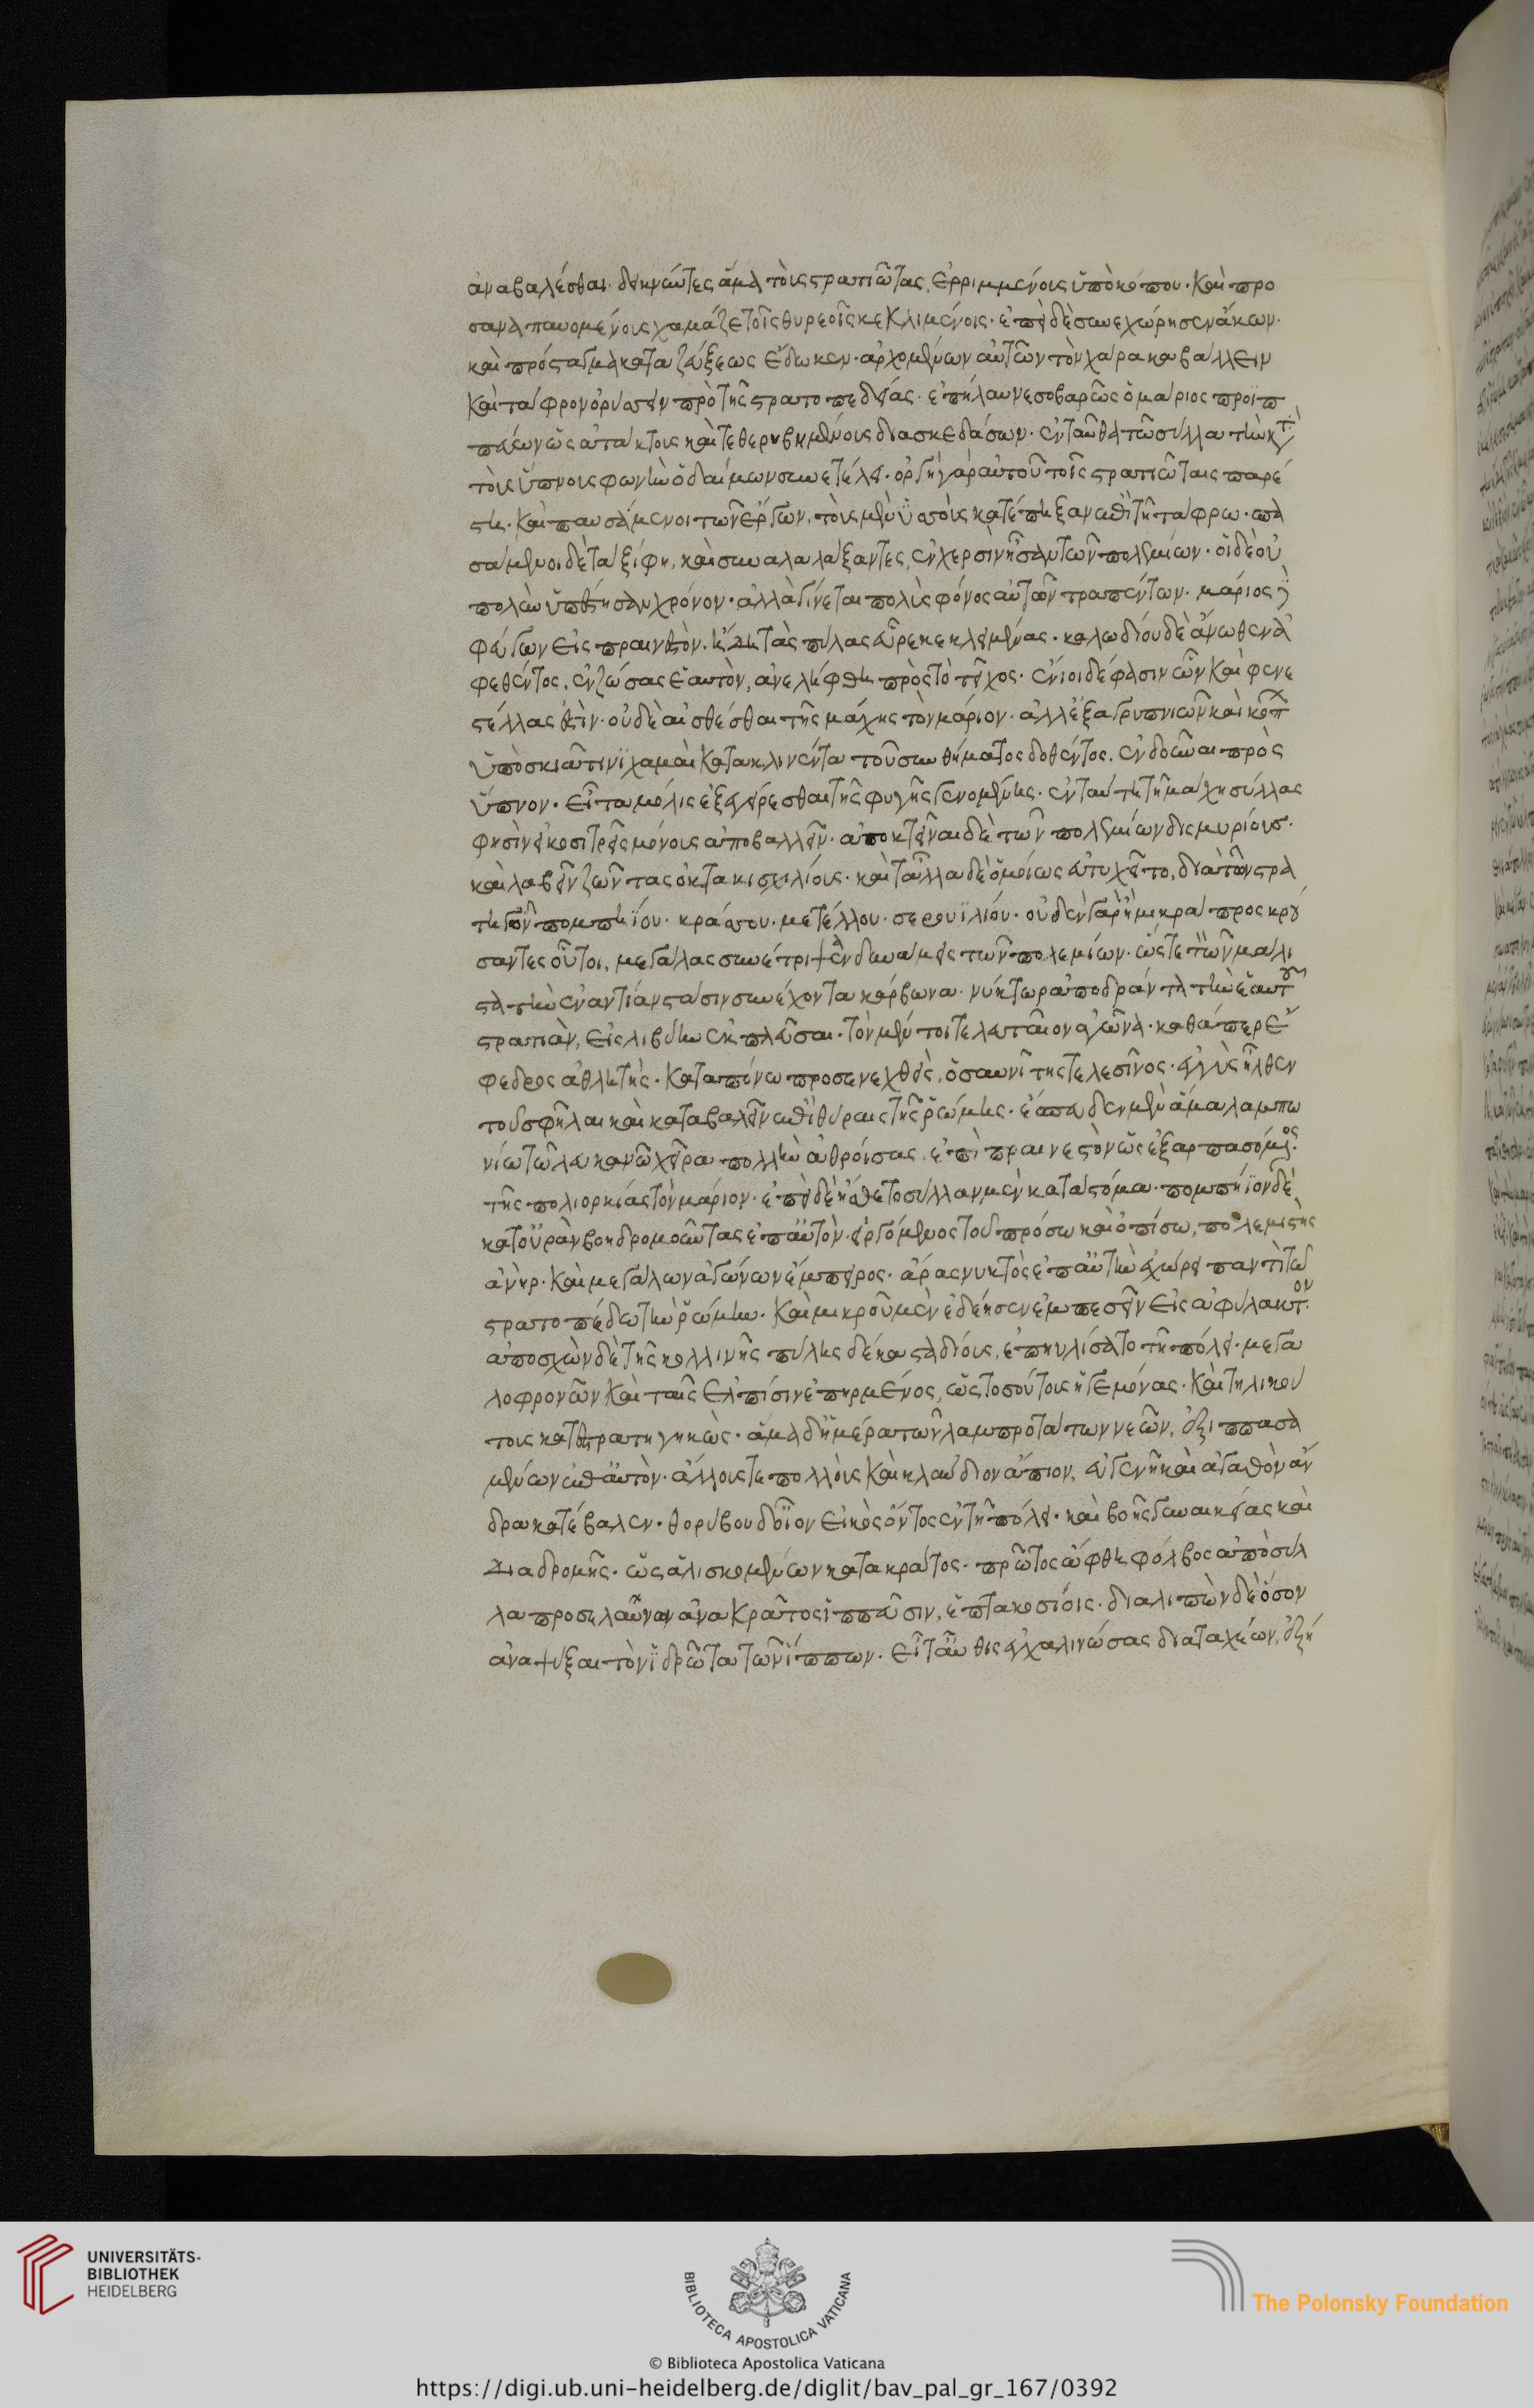 ἀναβαλέσθαι· δεικνύντες ἅμα τοὺς στρατιώτας, ἐρριμμένους ὑπὸ κόπου· καὶ προ
σαναπαυομένους χαμάζε τοῖς θυρεοῖς κεκλιμένοις· ἐπεὶ δὲ συνεχώρησεν ἄκων·
καὶ πρόσταγμα καταζεύξεως ἔδωκεν· ἀρχομένων αὐτῶν τὸν χάρακα βάλλειν
καὶ τάφρον ὀρύσσειν πρὸ τῆς στρατοπεδείας· ἐπήλαυνε σοβαρῶς ὁ μάριος προϊπ
πεύων ὡς ἀτάκτους καὶ τεθορυβημένους διασκεδάσων· ἐνταῦθα τῶ σύλλα τὴν κατὰ
τοὺς ὕπνους φωνὴν ὁ δαίμων συνετέλει· ὀργὴ γὰρ αὐτοῦ τοῖς στρατιώταις παρέ
στη· καὶ παυσάμενοι τῶν ἔργων, τοὺς μὲν ὑσσοὺς κατέπηξαν ἐπὶ τῆ τάφρω· σπα
σάμενοι δὲ τὰ ξίφη, καὶ συναλαλάξαντες, ἐν χερσὶν ἦσαν τῶν πολεμίων· οἱ δὲ οὐ
πολὺν ὑπέστησαν χρόνον· ἀλλὰ γίνεται πολὺς φόνος αὐτῶν τραπέντων· μάριος δὲ
φεύγων εἰς πραινεστὸν· ἤδη τὰς πύλας εὗρε κεκλειμένας· καλωδίου δὲ ἄνωθεν ἀ
φεθέντος, ἐνζώσας ἑαυτὸν, ἀνελήφθη πρὸς τὸ τεῖχος· ἔνιοι δέ φασιν ὧν καὶ φενε
στέλλας ἐστὶν· οὐδὲ αἰσθέσθαι τῆς μάχης τὸν μάριον· ἀλλ' ἐξ ἀγρυπνιῶν καὶ κόπων
ὑπὸ σκιᾶ τινὶ χαμαὶ κατακλινέντα τοῦ συνθήματος δοθέντος, ἐνδοῦναι πρὸς
ὕπνον· εἶτα μόλις ἐξεγείρεσθαι τῆς φυγῆς γενομένης· ἐν ταύτη τῆ μάχη σύλλας
φησὶν εἰκοσιτρεῖς μόνους ἀποβαλεῖν· ἀποκτεῖναι δὲ τῶν πολεμίων δισμυρίους·
καὶ λαβεῖν ζῶντας ὀκτακισχιλίους· καὶ τἆλλα δὲ ὁμοίως εὐτυχεῖτο, διὰ τῶν στρα
τηγῶν πομπηΐου· κράσσου· μετέλλου· σερουϊλίου· οὐδὲν γὰρ ἢ μικρὰ προσκρού
σαντες οὗτοι, μεγάλας συνέτριψαν δυνάμεις τῶν πολεμίων· ὥστε τὸν μάλι
στα τὴν ἐναντίαν στάσιν συνέχοντα κάρβωνα· νύκτωρ ἀποδράντα τὴν ἑαυτοῦ
στρατιὰν, εἰς λιβύην ἐκπλεῦσαι· τὸν μέν τοι τελευταῖον ἀγῶνα· καθάπερ ἔ
φεδρος ἀθλητὴς· καταπόνω προσενεχθεὶς, ὁ σαυνίτης τελεσῖνος· ἐγγὺς ἦλθεν
τοῦ σφῆλαι καὶ καταβαλεῖν ἐπὶ θύραις τῆς ῥώμης· ἔσπευδεν μὲν ἅμα λαμπω
νίω τῶ λευκανῶ χεῖρα πολλὴν ἀθροίσας, ἐπὶ πραινεστὸν ὡς ἐξαρπασόμενος
τῆς πολιορκίας τὸν μάριον· ἐπεὶ δὲ ἤσθετο σύλλαν μὲν κατὰ στόμα· πομπήϊον δὲ
κατ' οὐρὰν βοηδρομοῦντας ἐπ' αὐτὸν· εἰργόμενος τοῦ πρόσω καὶ ὀπίσω, πολεμιστὴς
ἀνὴρ· καὶ μεγάλων ἀγώνων ἔμπειρος· ἄρας νυκτὸς ἐπ' αὐτὴν ἐχώρει παντὶ τῶ
στρατοπέδω τὴν ῥώμην· καὶ μικροῦ μὲν ἐδέησεν ἐμπεσεῖν εἰς ἀφύλακτον·
ἀποσχὼν δὲ τῆς κολλινῆς πύλης δέκα σταδίους, ἐπηυλίσατο τῆ πόλει· μεγα
λοφρονῶν καὶ ταῖς ἐλπίσιν ἐπηρμένος, ὡς τοσούτους ἡγεμόνας· καὶ τηλικού
τους κατεστρατηγηκὼς· ἅμα δ' ἡμέρα τῶν λαμπροτάτων νεῶν, ἐξιππασα
μένων ἐπ' αὐτὸν· ἄλλους τε πολλοὺς καὶ κλαύδιον ἄππιον, εὐγενῆ καὶ ἀγαθὸν ἄν
δρα κατέβαλεν· θορύβου δ' οἷον εἰκὸς ὄντος ἐν τῆ πόλει· καὶ βοῆς γυναικείας καὶ
διαδρομῆς· ὡς ἁλισκομένων κατακράτος· πρῶτος ὤφθη φόλβος ἀπὸ σύλ
λα προσελαύνων ἀνακράτος ἱππεῦσιν, ἑπτακοσίοις· διαλιπὼν δὲ ὅσον
ἀναψύξαι τὸν ἱδρῶτα τῶν ἵππων· εἶτ' αὖθις ἐγχαλινώσας διαταχέων, ἐξή
UNIVERSITÄTS-
BIBLIOTHEK
HEIDELBERG
BIBLIOTECA APOSTOLICA VATICANA
The Polonsky Foundation
© Biblioteca Apostolica Vaticana
https://digi.ub.uni-heidelberg.de/diglit/bav_pal_gr_167/0392